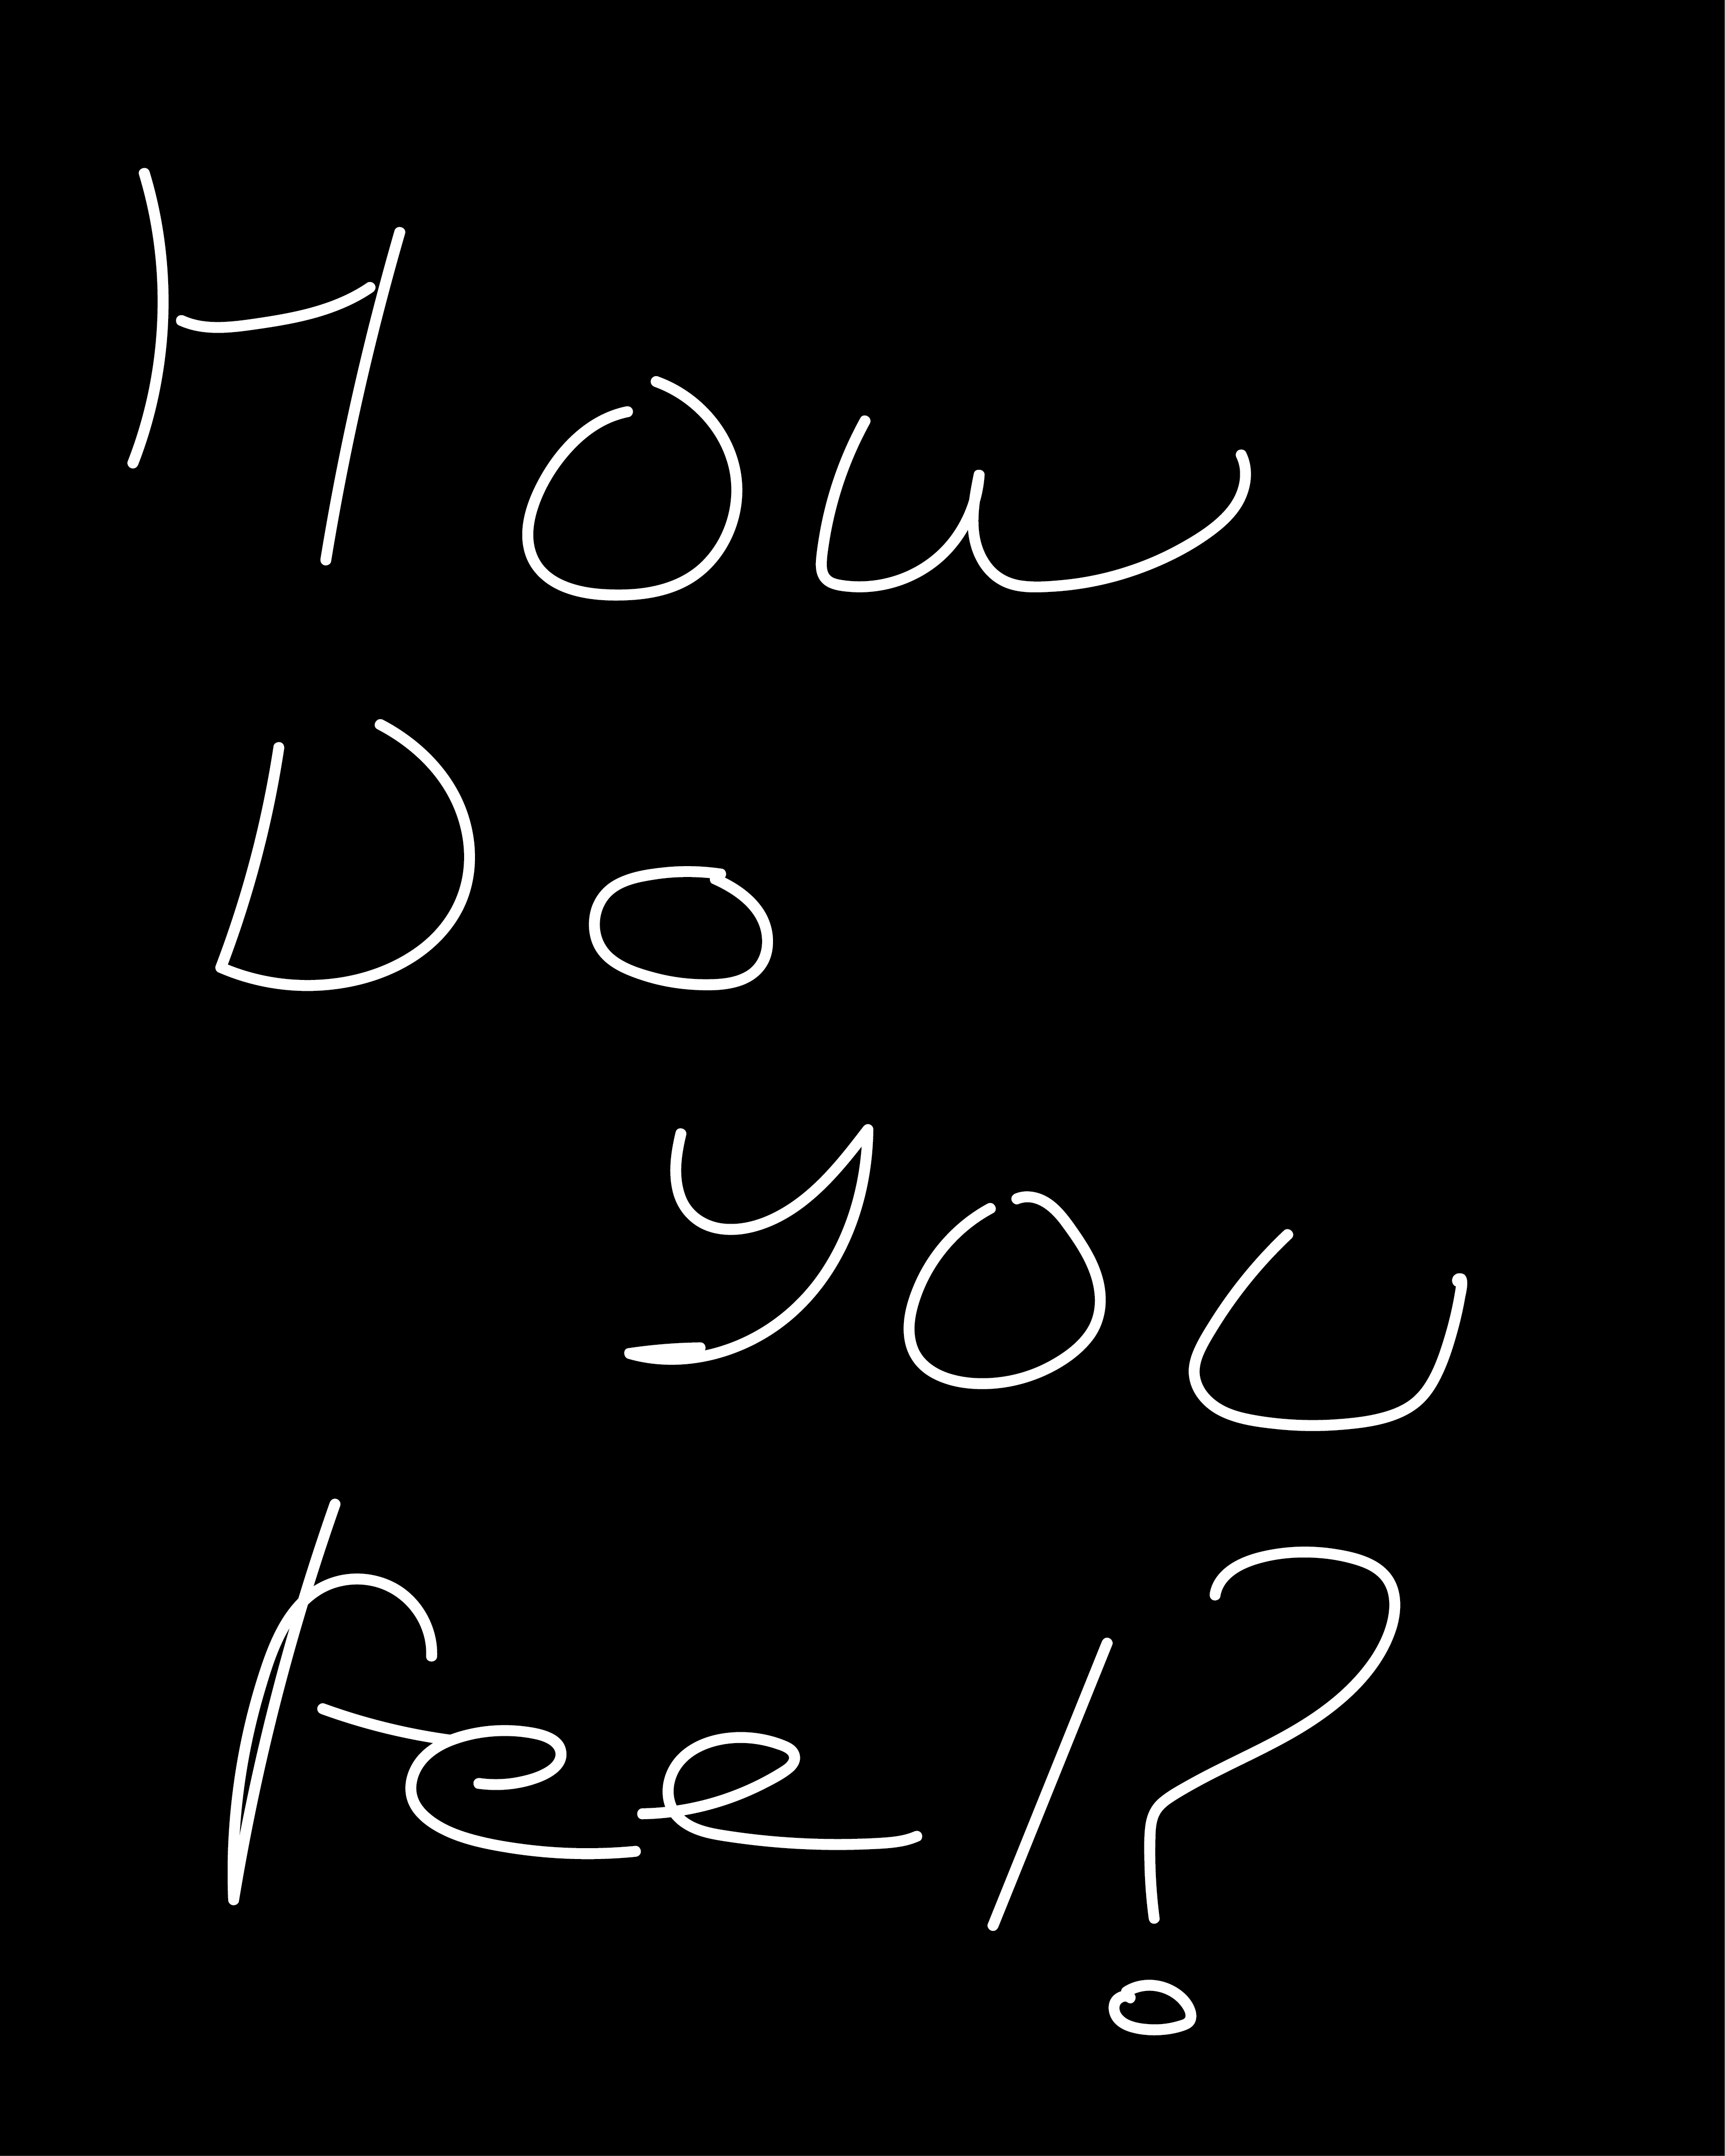 How
Do
you
feel?